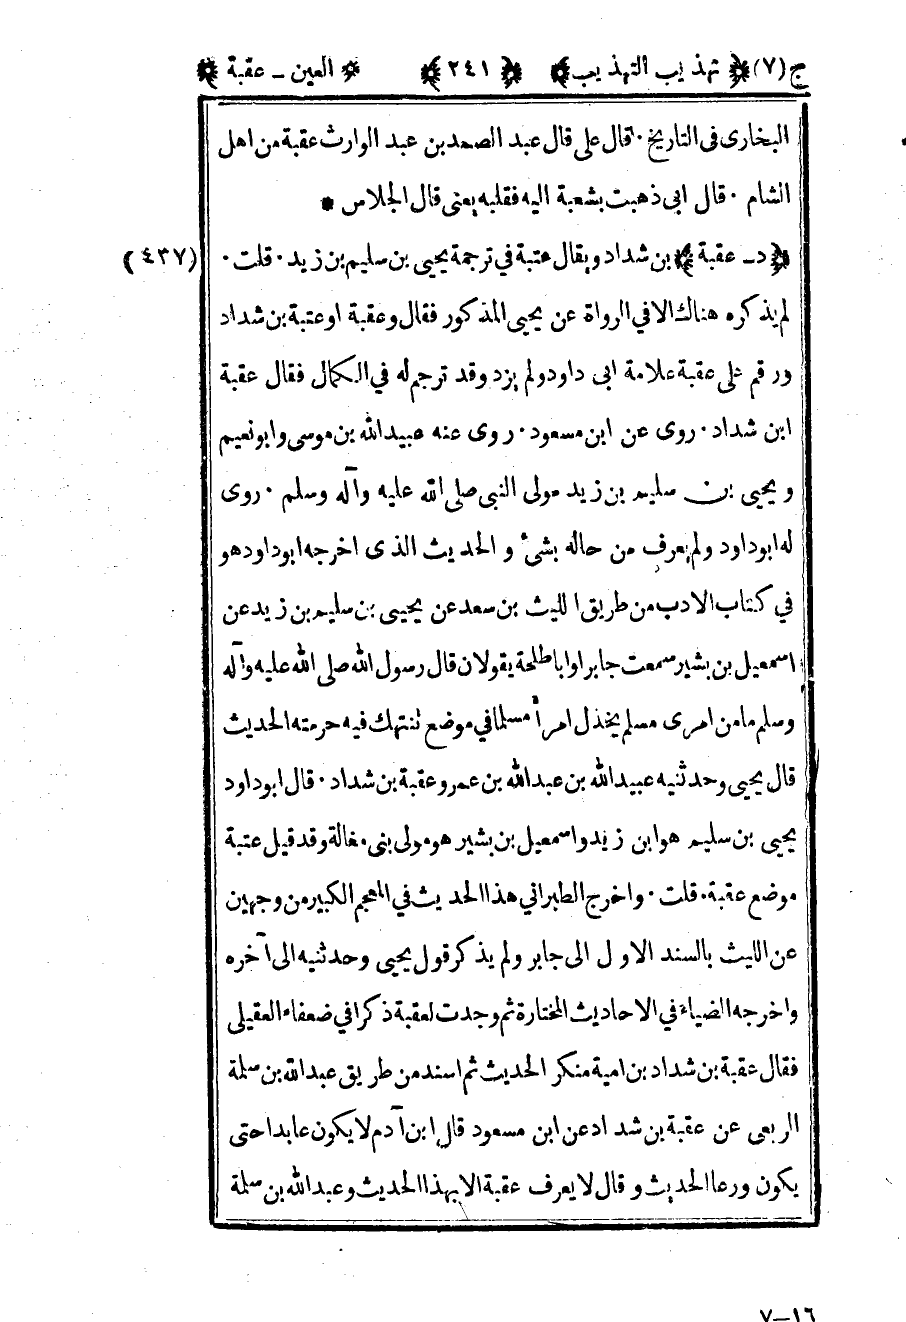 ج (٧) ﴿ تهذيب التهذيب ﴾ ﴿ ٢٤١ ﴾ ﴿ العين ـ عقبة ﴾
البخارى فى التاريخ · قال على قال عبد الصمد بن عبد الوارث عقبة من اهل
الشام · قال ابى ذهبت بشعبة اليه فقلبه يعنى قال الجلاس *
﴿ د ـ عقبة ﴾ بن شداد ويقال عتبة في ترجمة يحيى بن سليم بن زيد · قلت · (٤٣٧)
لم يذكره هناك الا في الرواة عن يحيى المذكور فقال وعقبة او عتبة بن شداد
ورقم على عقبة علامة ابى داود ولم يزد وقد ترجم له في الكمال فقال عقبة
ابن شداد · روى عن ابن مسعود · روى عنه عبيد الله بن موسى وابو نعيم
و يحيى بن سليم بن زيد مولى النبي صلى الله عليه وآله وسلم · روى
له ابو داود ولم يعرف من حاله بشئ و الحديث الذى اخرجه ابو داود هو
في كتاب الادب من طريق الليث بن سعد عن يحيى بن سليم بن زيد عن
اسمعيل بن بشير سمعت جابرا وابا طلحة يقولان قال رسول الله صلى الله عليه وآله
وسلم ما من امرى مسلم يخذل امرأ مسلما في موضع تنتهك فيه حرمته الحديث
قال يحيى وحدثنيه عبيد الله بن عبد الله بن عمر وعقبة بن شداد · قال ابو داود
يحيى بن سليم هو ابن زيد واسمعيل بن بشير هو مولى بنى مغالة وقد قيل عتبة
موضع عقبة · قلت · واخرج الطبراني هذا الحديث في المعجم الكبير من وجهين
عن الليث بالسند الاول الى جابر ولم يذكر قول يحيى وحدثنيه الى آخره
واخرجه الضياء في الاحاديث المختارة ثم وجدت لعقبة ذكرا في ضعفاء العقيلى
فقال عقبة بن شداد بن امية منكر الحديث ثم اسند من طريق عبد الله بن سلمة
الربعى عن عقبة بن شداد عن ابن مسعود قال ابن آدم لا يكون عابدا حتى
يكون ورعا الحديث و قال لا يعرف عقبة الا بهذا الحديث وعبد الله بن سلمة
٧ـ١٦